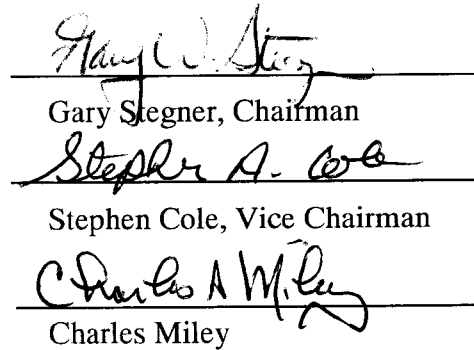 Gary W. Steg
Gary Stegner, Chairman
Stephen A. Cole
Stephen Cole, Vice Chairman
Charles A Miley
Charles Miley